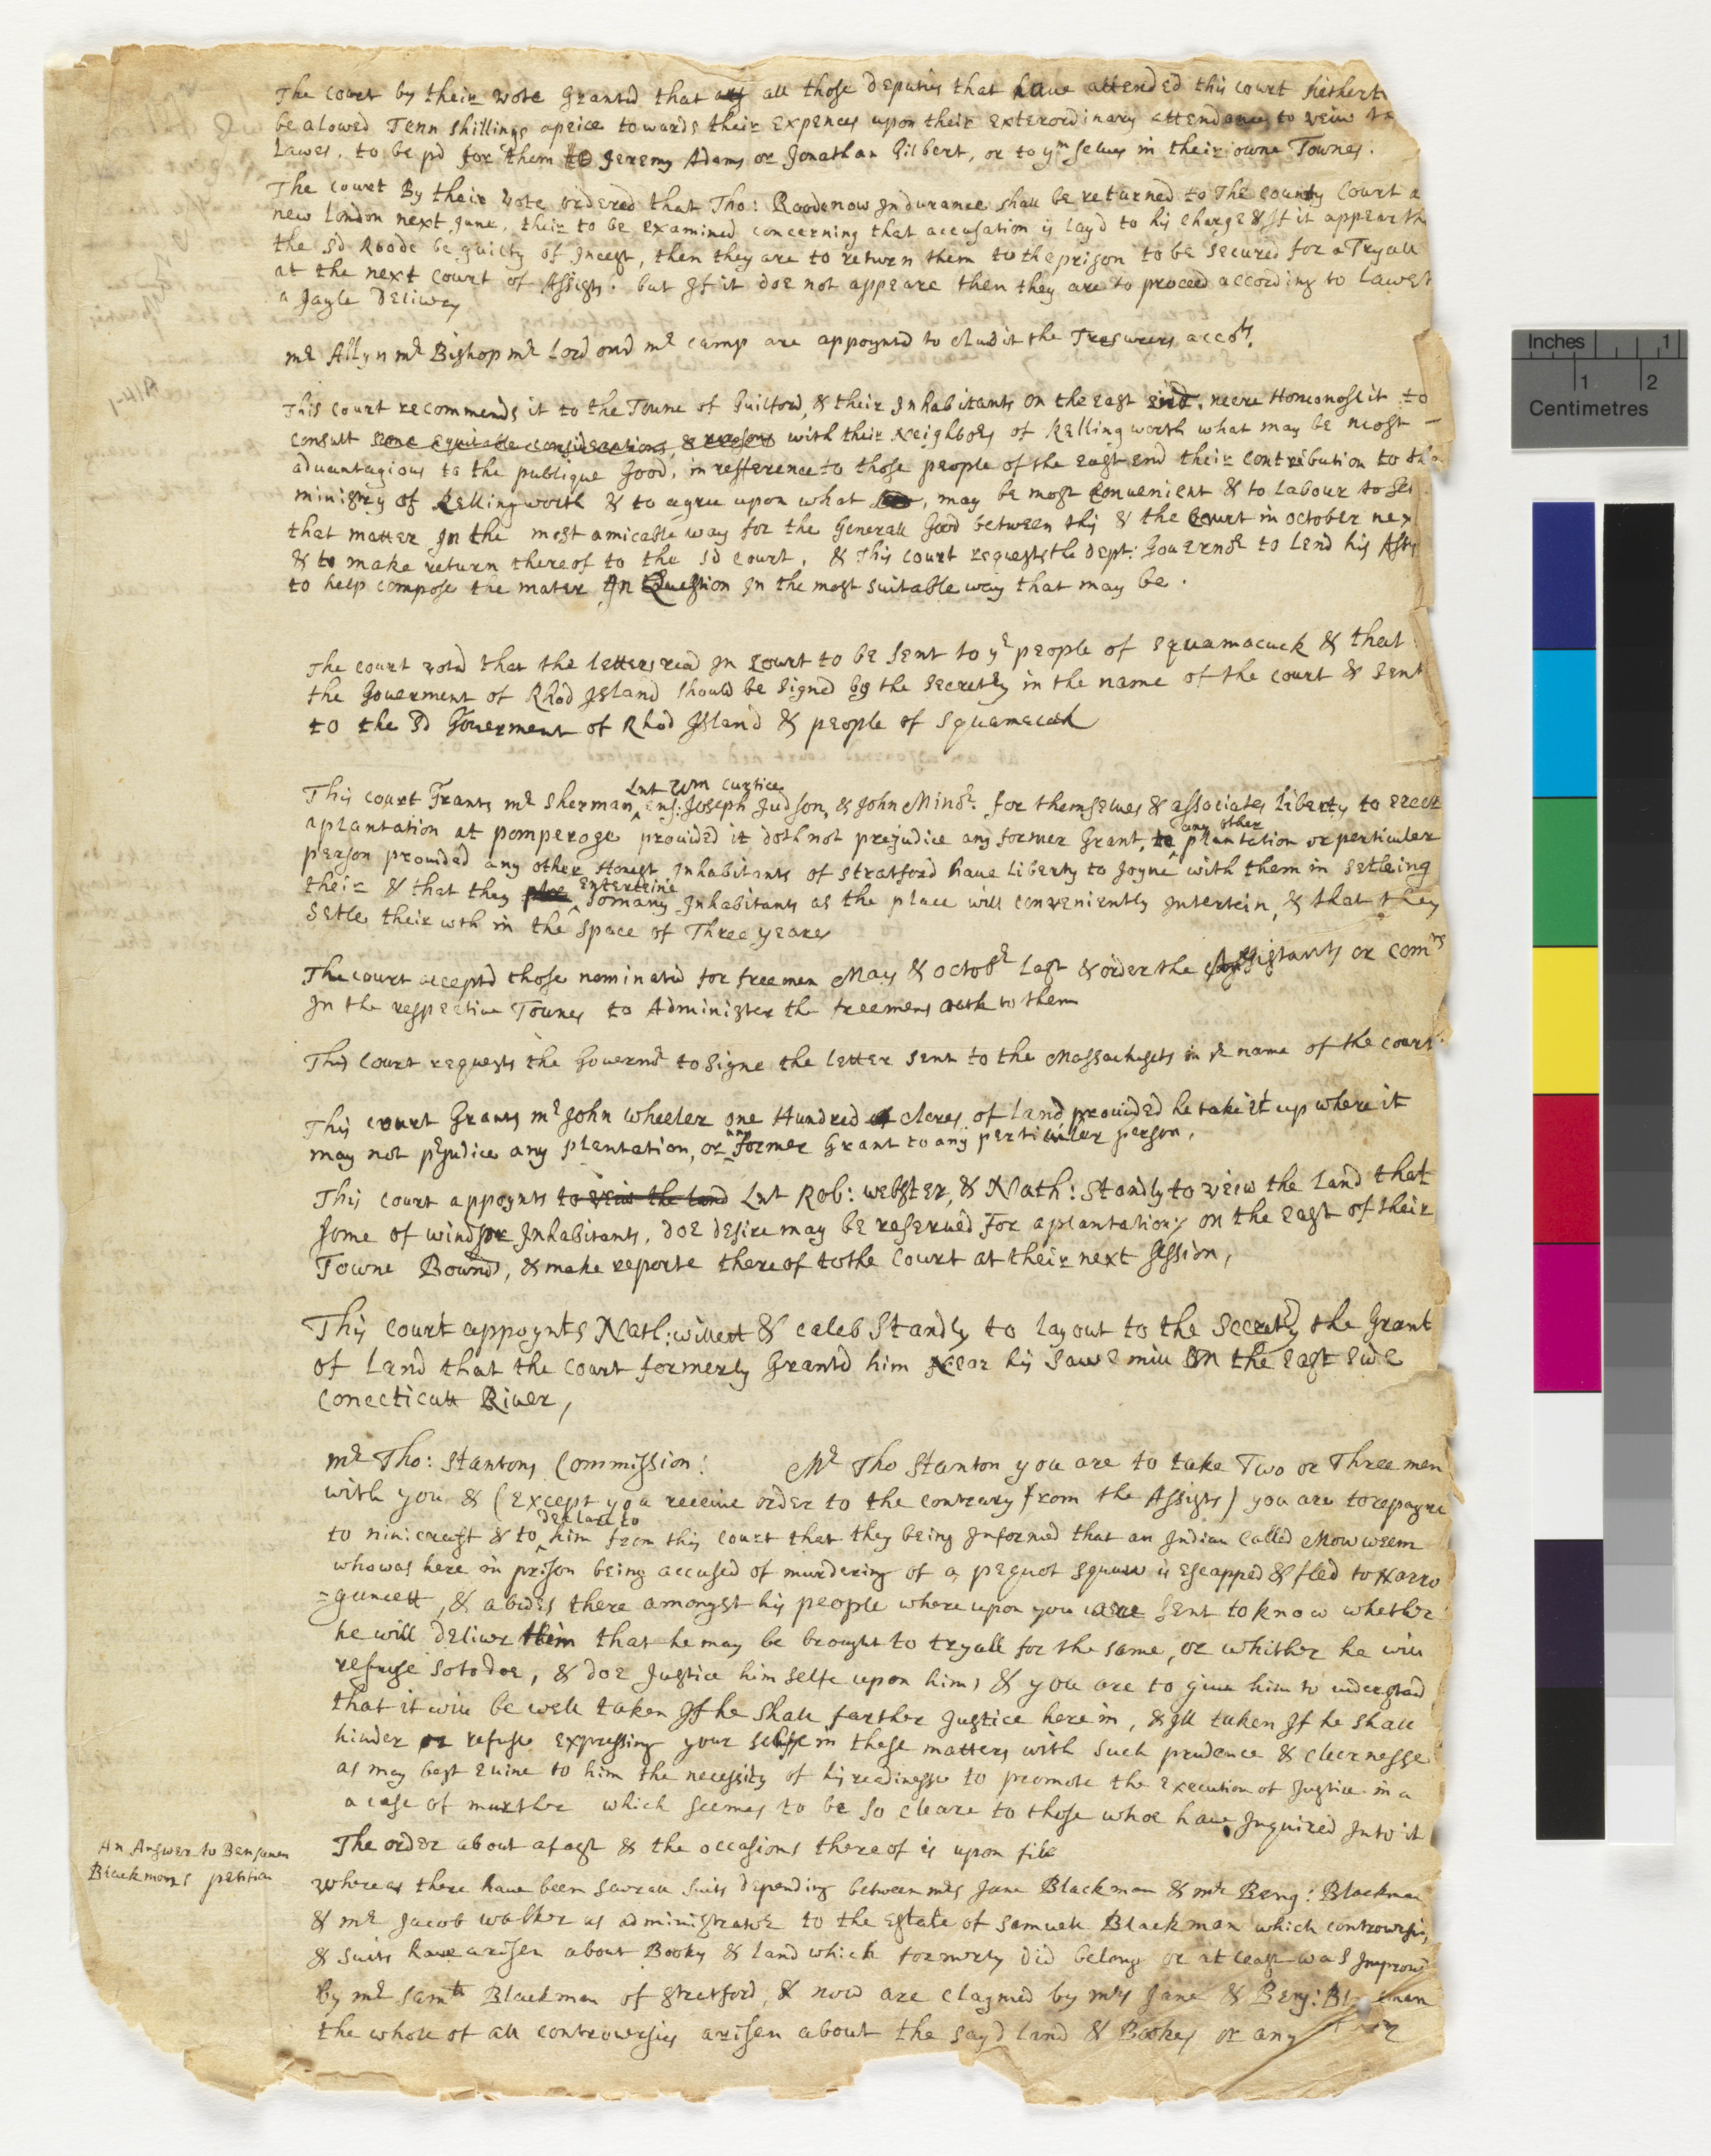 The court by their vote Grantd that all those Deputies that haue attended this court hithert
be alowed Tenn shillings apeice towards their Expences upon their exterordinary attendance to veiw
Lawes, to be pd for them to Jeremy Adams or Jonathan Gilbert, or to ym selues in their owne Townes.
The court By their vote ordered that Tho: Roode now In durance shall be returned to The county Court a
new London next June, their to be Examined concerning that accusation is lay'd to his charge & If it appear th
the sd Roode be guilty of Incest, then they are to return them to the prison to be secured for a Tryall
at the next court of Assists: but If it doe not appeare then they are to proceed according to Lawes
a Jayle Deliuery
mr Allyn mr Bishop mr Lord and mr camp are appoyntd to Audit the Tresurers accots.
This court recommends it to the Towne of Guilford, & their Inhabitants on the East End, neere Homonoscit to
consult some equitable considerations, & reasons with their Neighbors of Kellingworth what may be most
aduantagious to the publique Good, in refference to those people of the East end their contribution to the
ministry of Kellingworth & to agree upon what may be most conuenient & to Labour to
that matter In the most amicable way for the Generall Good between this & the Court in october nex
& to make return thereof to the sd court, & This court requests the Dept: Gouernor to Lend his Asis
to help compose the mater In Question In the most suitable way that may be.
The court voted that the letters read In Court to be sent to ye people of Squamacuck & that
the Gouerment of Rhod Island should be signed by the Secretry in the name of the court & sent
to the sd Gouerment of Rhod Island & people of Squamacuk
Lnt Wm Curtice
This court Grants mr Sherman, Ens: Joseph Judson, & John Minor. for themselues & associates Liberty to erect
any other
a plantation at pomperoge provided it doth not prejudice any former Grant, to plantation or perticuler
person provided any other Honest Inhabitants of stratford haue Liberty to Joyne with them in setleing
Entertaine
their & that they so many Inhabitants as the place will conveniently Intertein, & that they
setle their wth in the space of Three yeares
The court acceptd those nominatd for freemen May & octobr Last & order the Assistants or comrs
In the respective Townes to Administer the freemens oath to them
This Court requests the Gouernor to signe the letter sent to the Massachusets in ye name of the court
This court Grants mr John wheeler one Hundred Acres of land provided he take it up where it
any
may not prjudice any plantation, or former Grant to any perticuler person,
This court appoynts to veiw the land Lnt Rob: webster, & Nath: Standly to veiw the Land that
some of windsor Inhabitants, doe desire may be reserued For a plantation on the East of their
Towne Bounds, & make reporte thereof to the Court at their next session,
This court appoynts Nath: willett & caleb Standly to lay out to the Secretry the Grant
of Land that the court formerly Grantd him Near his sawe mill On the East side
Conecticutt River,
mr Tho: Stantons Commission: Mr Tho Stanton you are to take Two or Three men
with you & (Except you receiue order to the contrary from the Assists) you are to repayre
Declare to
to ninicraft & to him from this court that they being Informed that an Indian called Mowweem
who was here in prison being accused of murdering of a pequot squaw is Escapped & fled to Narro
=gancett, & abides there amongst his people where upon you are sent to know whether
he will Deliuer him that he may be brought to tryall for the same, or whither he will
refuse so to doe, & doe Justice him selfe upon him, & you are to giue him to understand
that it will be well taken If he shall farther Justice here in, & Ill taken If he shall
hinder or refuse Expressing your selfe in these matters with such prudence & cleernesse
as may best euine to him the necessity of his readinesse to promote the Execution of Justice in a
a case of murther which seemes to be so cleare to those whoe haue Inquired Into it
The order about a fast & the occasions thereof is upon file
An Answer to Benjamen
Blackmans petition
whereas there haue been seuerall suits depending between mrs Jane Blackman & mr Benj: Blackman
& mr Jacob walker as administrator to the Estate of Samuell Blackman which controuersies,
& suits haue arisen about Books & land which formerly did belong or at least was Improued
by mr Samll Blackman of stratford, & now are claymed by mrs Jane & Benj: Bl man
the whole of all controuersies arisen about the sayd land & Bookes or any